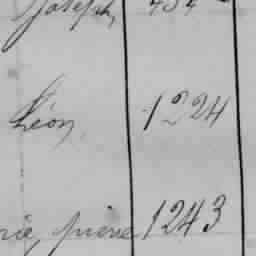 Joseph, 434
Léon, 1224
rie, pierre 1243